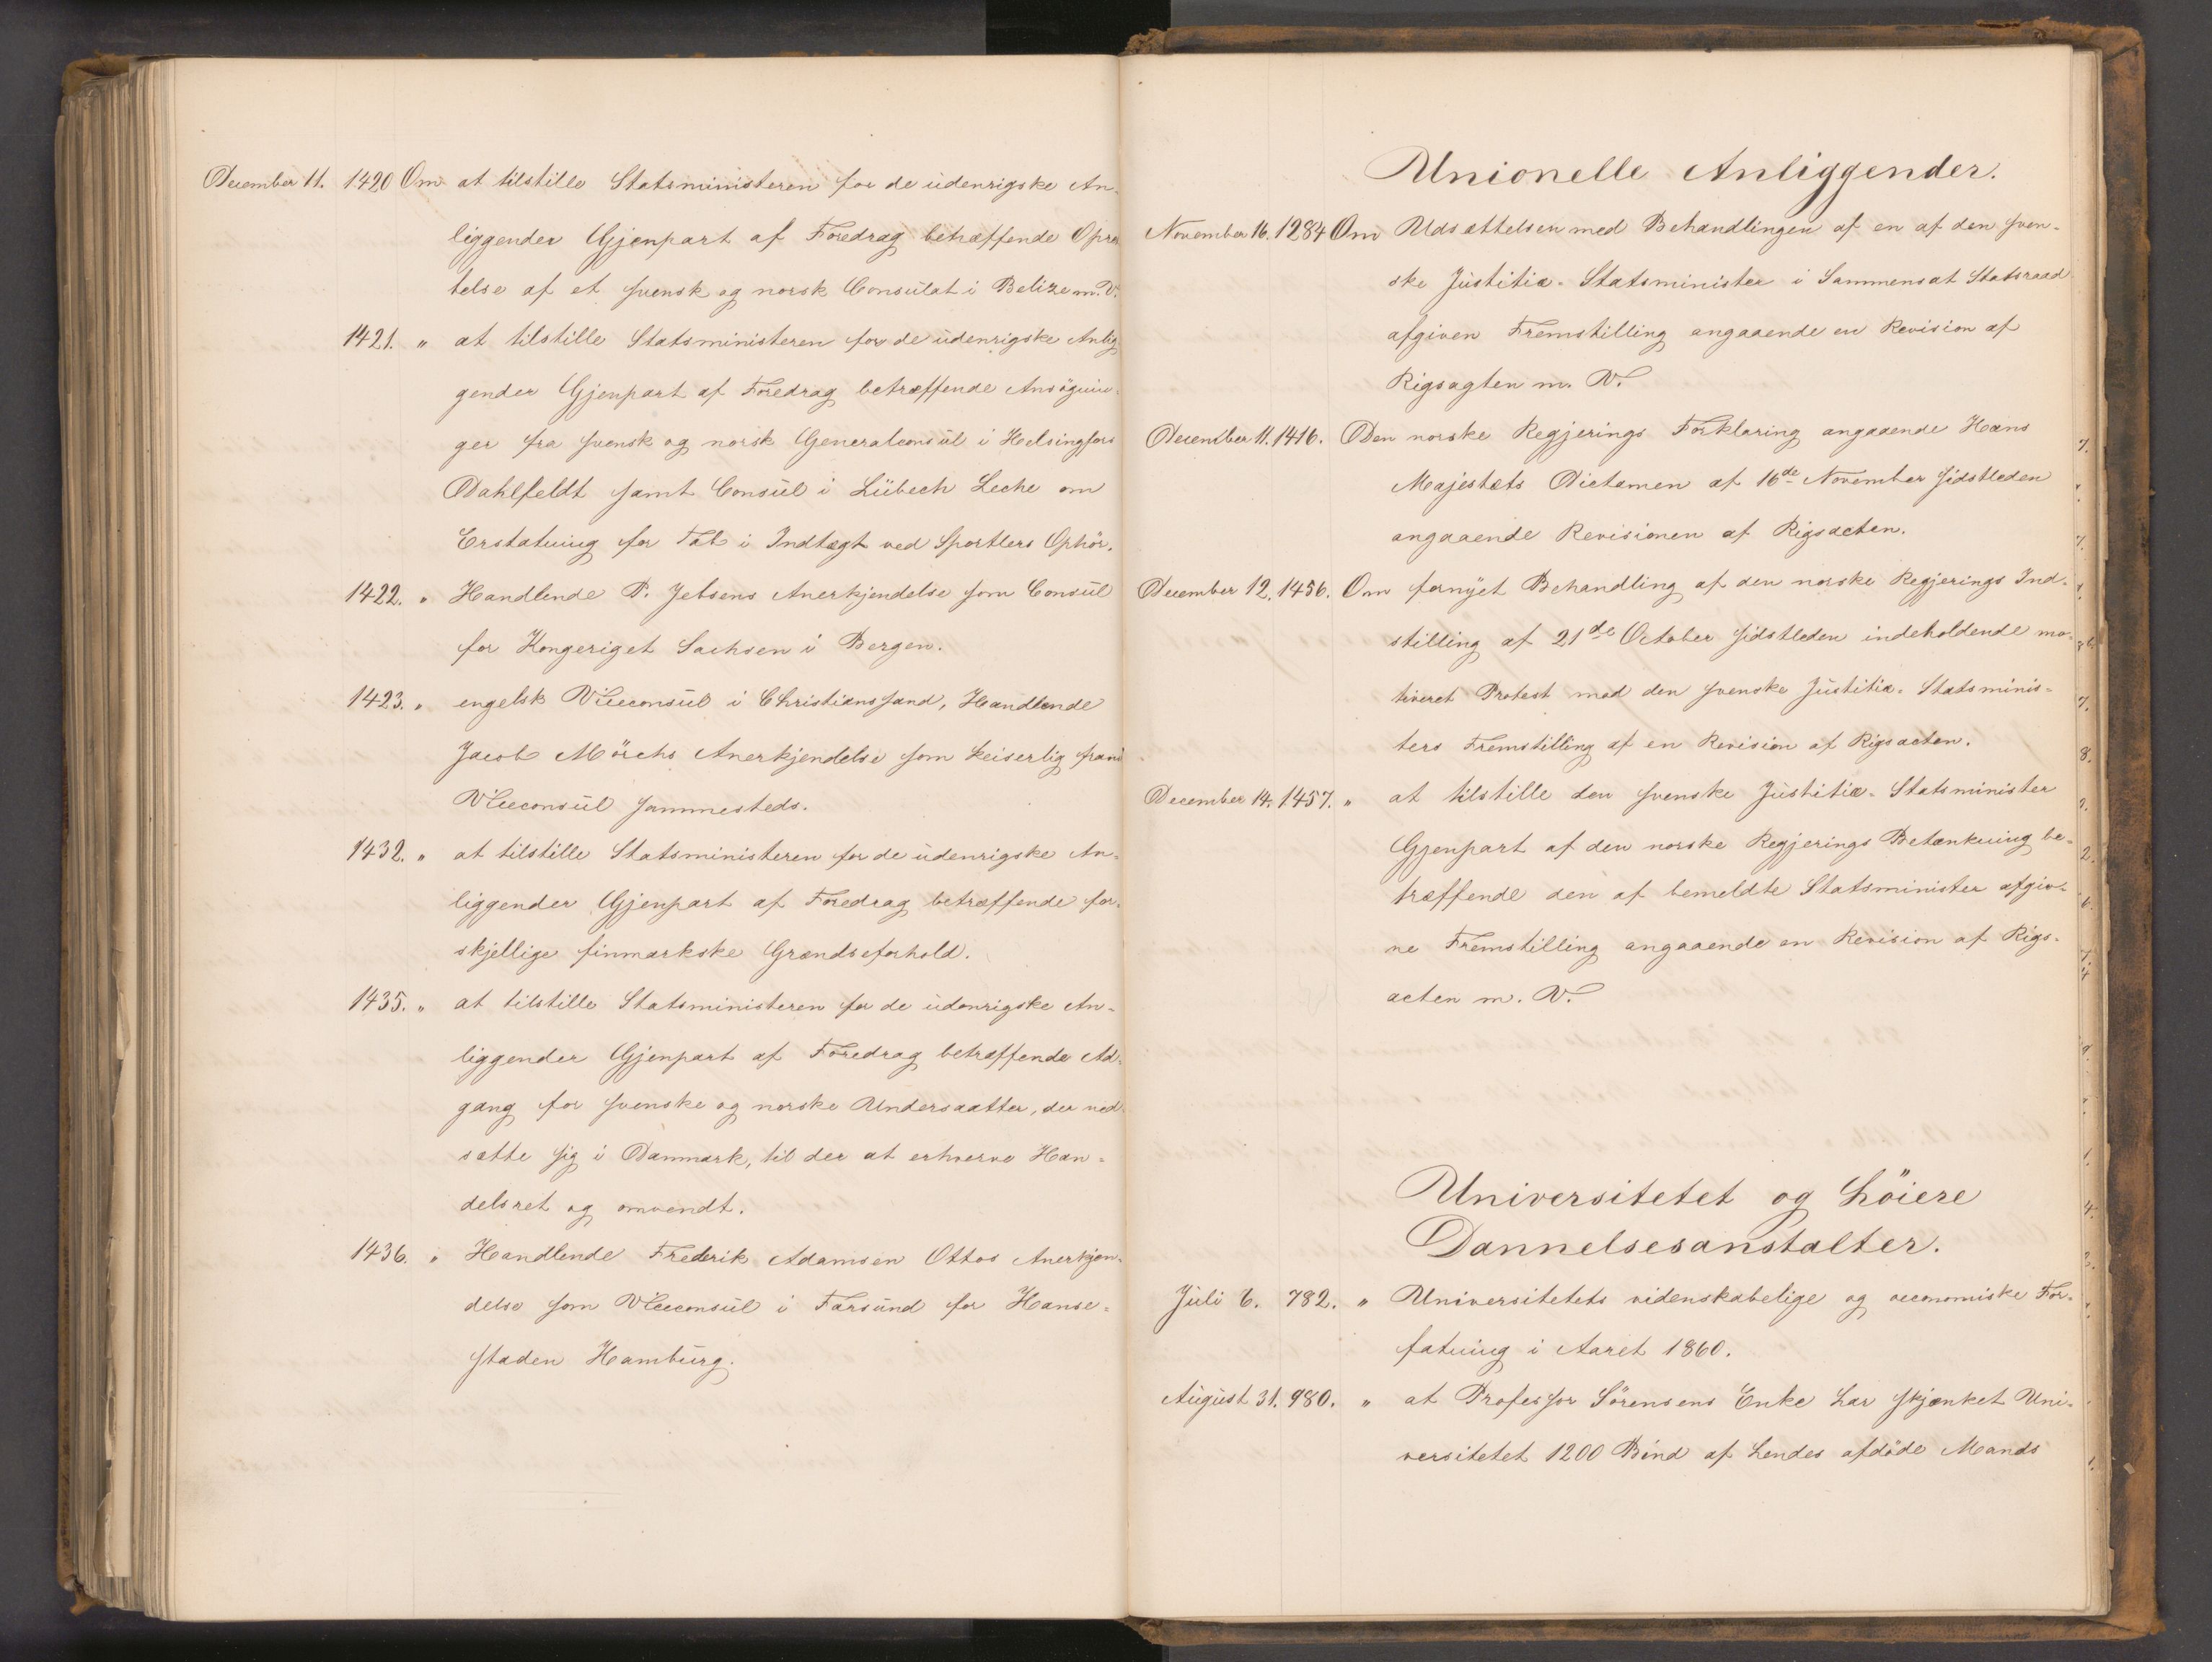 December 11. 1420 Om at tilstille Statsministeren for de udenrigske An-
liggender Gjenpart af Foredrag betræffende Opret
telse af et svensk og norsk Consulat i Belize m. V.
1421. " at tilstille Statsministeren for de udenrigske Anlig
gender Gjenpart af Foredrag betræffende Ansögnin-
ger fra svensk og norsk Generalconsul i Helsingfors
Dahlfeldt samt Consul i Lübech Leche om
Erstatning for Tab i Indtægt ved Sportlers Ophör.
1422. " Handlende P. Jebsens Anerkjendelse som Consul
for Kongeriget Sachsen i Bergen.
1423. " engelsk Viceconsul i Christianssand, Handlende
Jacob Mörchs Anerkjendelse som keiserlig fransk
Viceconsul sammesteds.
1432. " at tilstille Statsministeren for de udenrigske An-
liggender Gjenpart af Foredrag betræffende for-
skjellige finmarkske Grændseforhold.
1435. " at tilstille Statsministeren for de udenrigske An-
liggender Gjenpart af Foredrag betræffende Ad-
gang for svenske og norske Undersaatter, der ned-
sætte sig i Danmark, til der at erhverve Han-
delsret og omvendt.
1436. " Handlende Frederik Adamsen Ottos Anerkjen-
delse som Viceconsul i Farsund for Hanse-
staden Hamburg.
Unionelle Anliggender.
November 16. 1284 Om Udsættelsen med Behandlingen af en af den sven-
ske Justitiæ-Statsminister i Sammensat Statsraad
afgiven Fremstilling angaaende en Revision af
Rigsagten m. V.
December 11. 1416. Den norske Regjerings Forklaring angaaende Hans
Majestæts Dictamen af 16de November sidstleden
angaaende Revisionen af Rigsacten.
December 12. 1456. Om fornyet Behandling af den norske Regjerings Ind-
stilling af 21de October sidstleden indeholdende mo-
tiveret Protest mod den svenske Justitiæ-Statsminis-
ters Fremstilling af en Revision af Rigsacten.
December 14. 1457. " at tilstille den svenske Justitiæ-Statsminister
Gjenpart af den norske Regjerings Betænkning be-
træffende den af bemeldte Statsminister afgiv-
ne Fremstilling angaaende en Revision af Rigs-
acten m. V.
Universitetet og höiere
Dannelsesanstalter.
Juli 6. 782. " Universitetets videnskabelige og oeconomiske For-
fatning i Aaret 1860.
August 31. 980. " at Professor Sörensens Enke har skjænket Uni-
versitetet 1200 Bind af hendes afdöde Mands